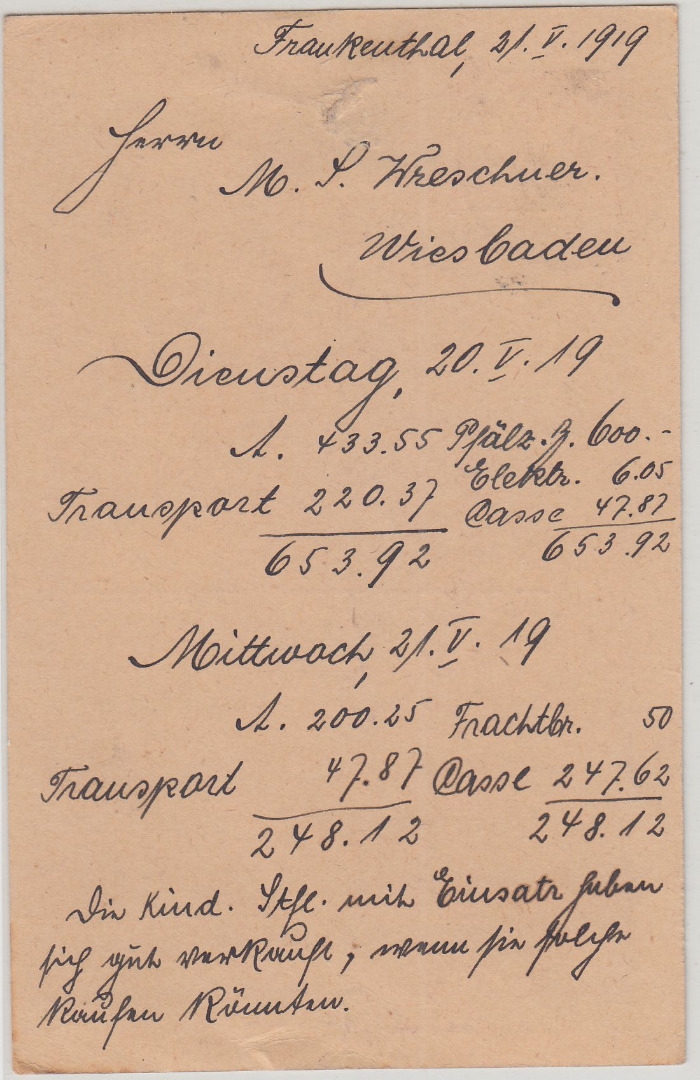 Frankenthal, 21. V. 1919
Herrn
M. S. Wreschner.
Wiesbaden
Dienstag, 20. V. 19
A. 433.55 Pfälz. Z. 600.-
Elektr. 6.05
Transport 220.37 Casse 47.87
653.92 653.92
Mittwoch, 21. V. 19
A. 200.25 Frachtbr. 50
Transport 47.87 Casse 247.62
248.12 248.12
Die Kind. Stfl. mit Einsatz haben
sich gut verkauft, wenn sie solche
kaufen könnten.